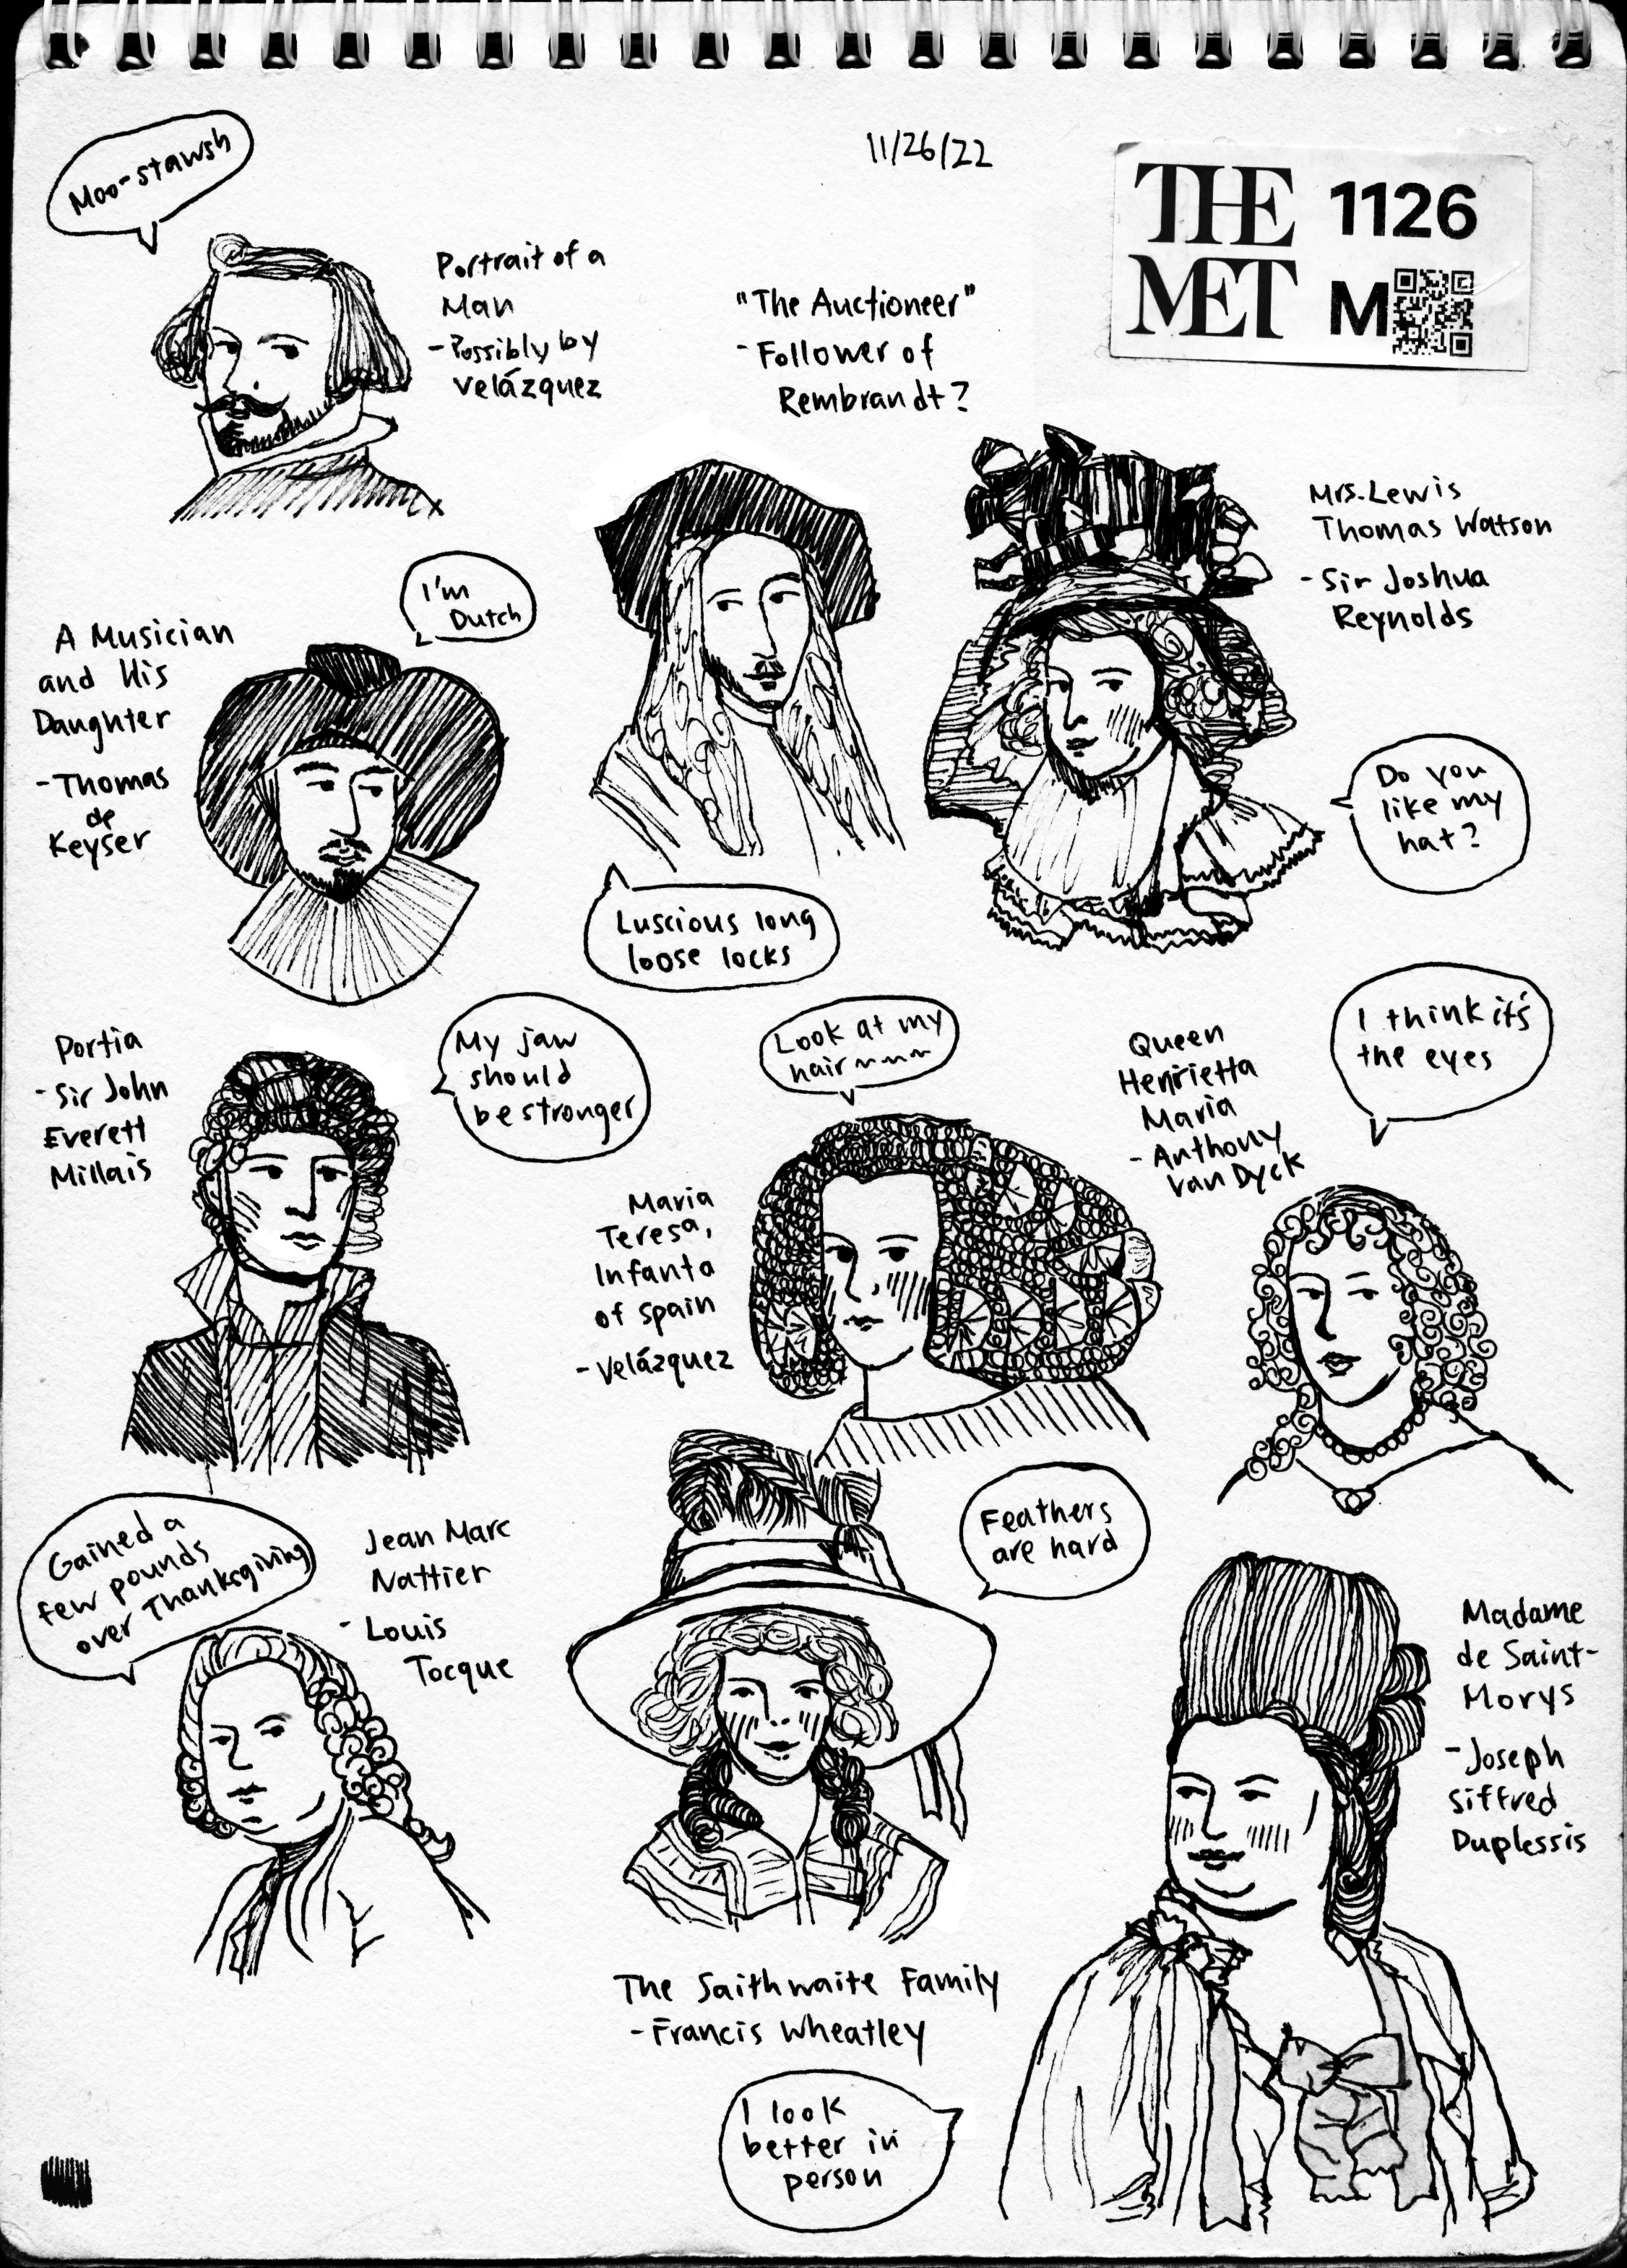 Moo-stawsh
11/26/22
THE
MET
1126
M
Portrait of a
Man
-Possibly by
Velázquez
"The Auctioneer"
-Follower of
Rembrandt?
Mrs. Lewis
Thomas Watson
-Sir Joshua
Reynolds
I'm
Dutch
A Musician
and His
Daughter
-Thomas
de
Keyser
Do you
like my
hat?
Luscious long
loose locks
Portia
-Sir John
Everett
Millais
My jaw
should
be stronger
Look at my
hair~~~
Queen
Henrietta
Maria
-Anthony
van Dyck
I think it's
the eyes
Maria
Teresa,
Infanta
of Spain
-Velázquez
Gained a
few pounds
over Thanksgiving
Jean Marc
Nattier
-Louis
Tocque
Feathers
are hard
Madame
de Saint-
Morys
-Joseph
Siffred
Duplessis
The Saithwaite Family
-Francis Wheatley
I look
better in
person